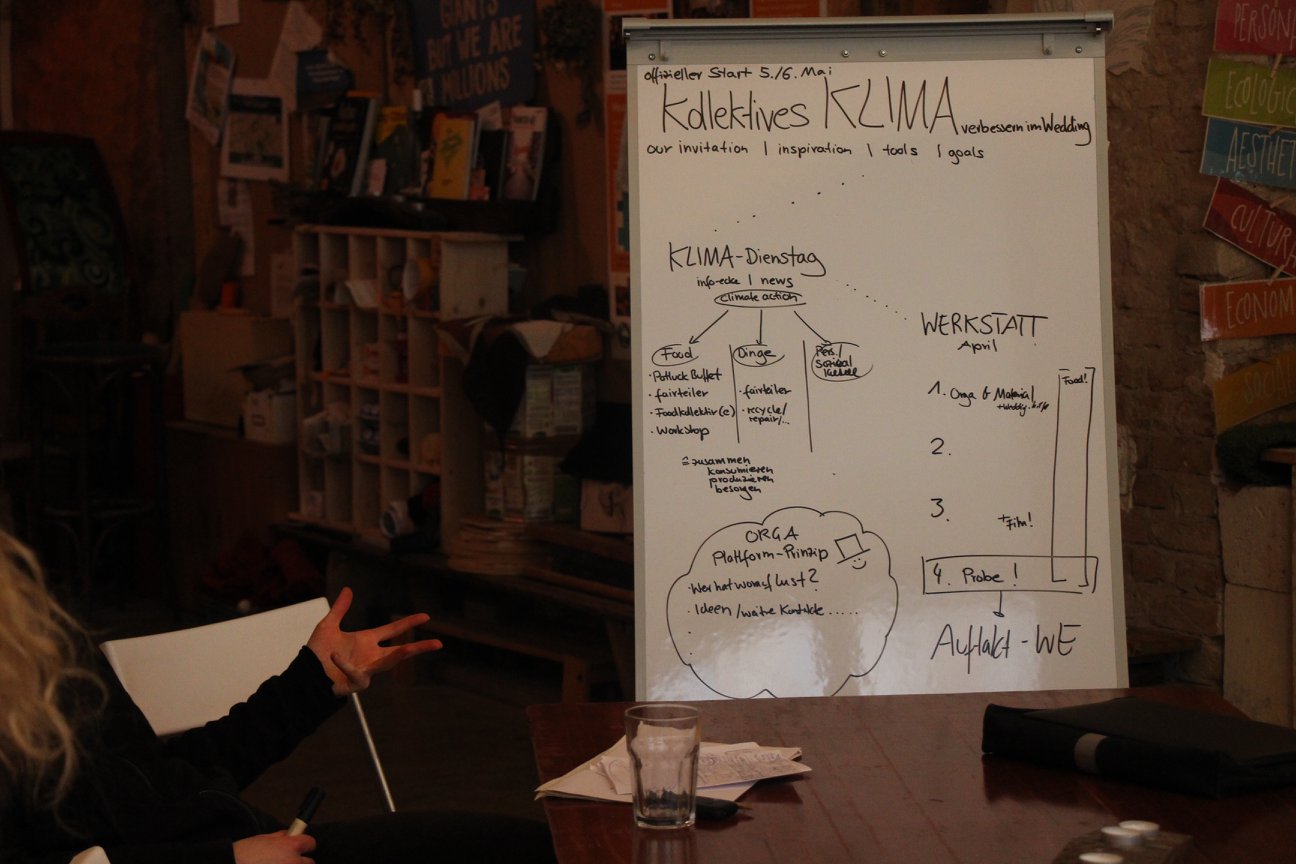 GIANTS
BUT WE ARE
MILLIONS
offizieller Start 5./6. Mai
Kollektives KLIMA verbessern im Wedding
our invitation | inspiration | tools | goals
KLIMA-Dienstag
info-ecke | news
climate action
Food
· Potluck Buffet
· fairteiler
· Foodkollektiv(e)
· Workshop
Dinge
· fairteiler
· recycle/
repair/...
Pers./
Sozial
= zusammen
konsumieren
produzieren
besorgen
ORGA
Plattform-Prinzip
· Wer hat worauf Lust?
· Ideen / weitere Kontakte .....
WERKSTATT
April
1. Orga & Material
Food!
2.
3.
+ Film!
4. Probe!
Auftakt-WE
PERSON
ECOLOGIC
AESTHET
CULTURA
ECONOM
SOCI